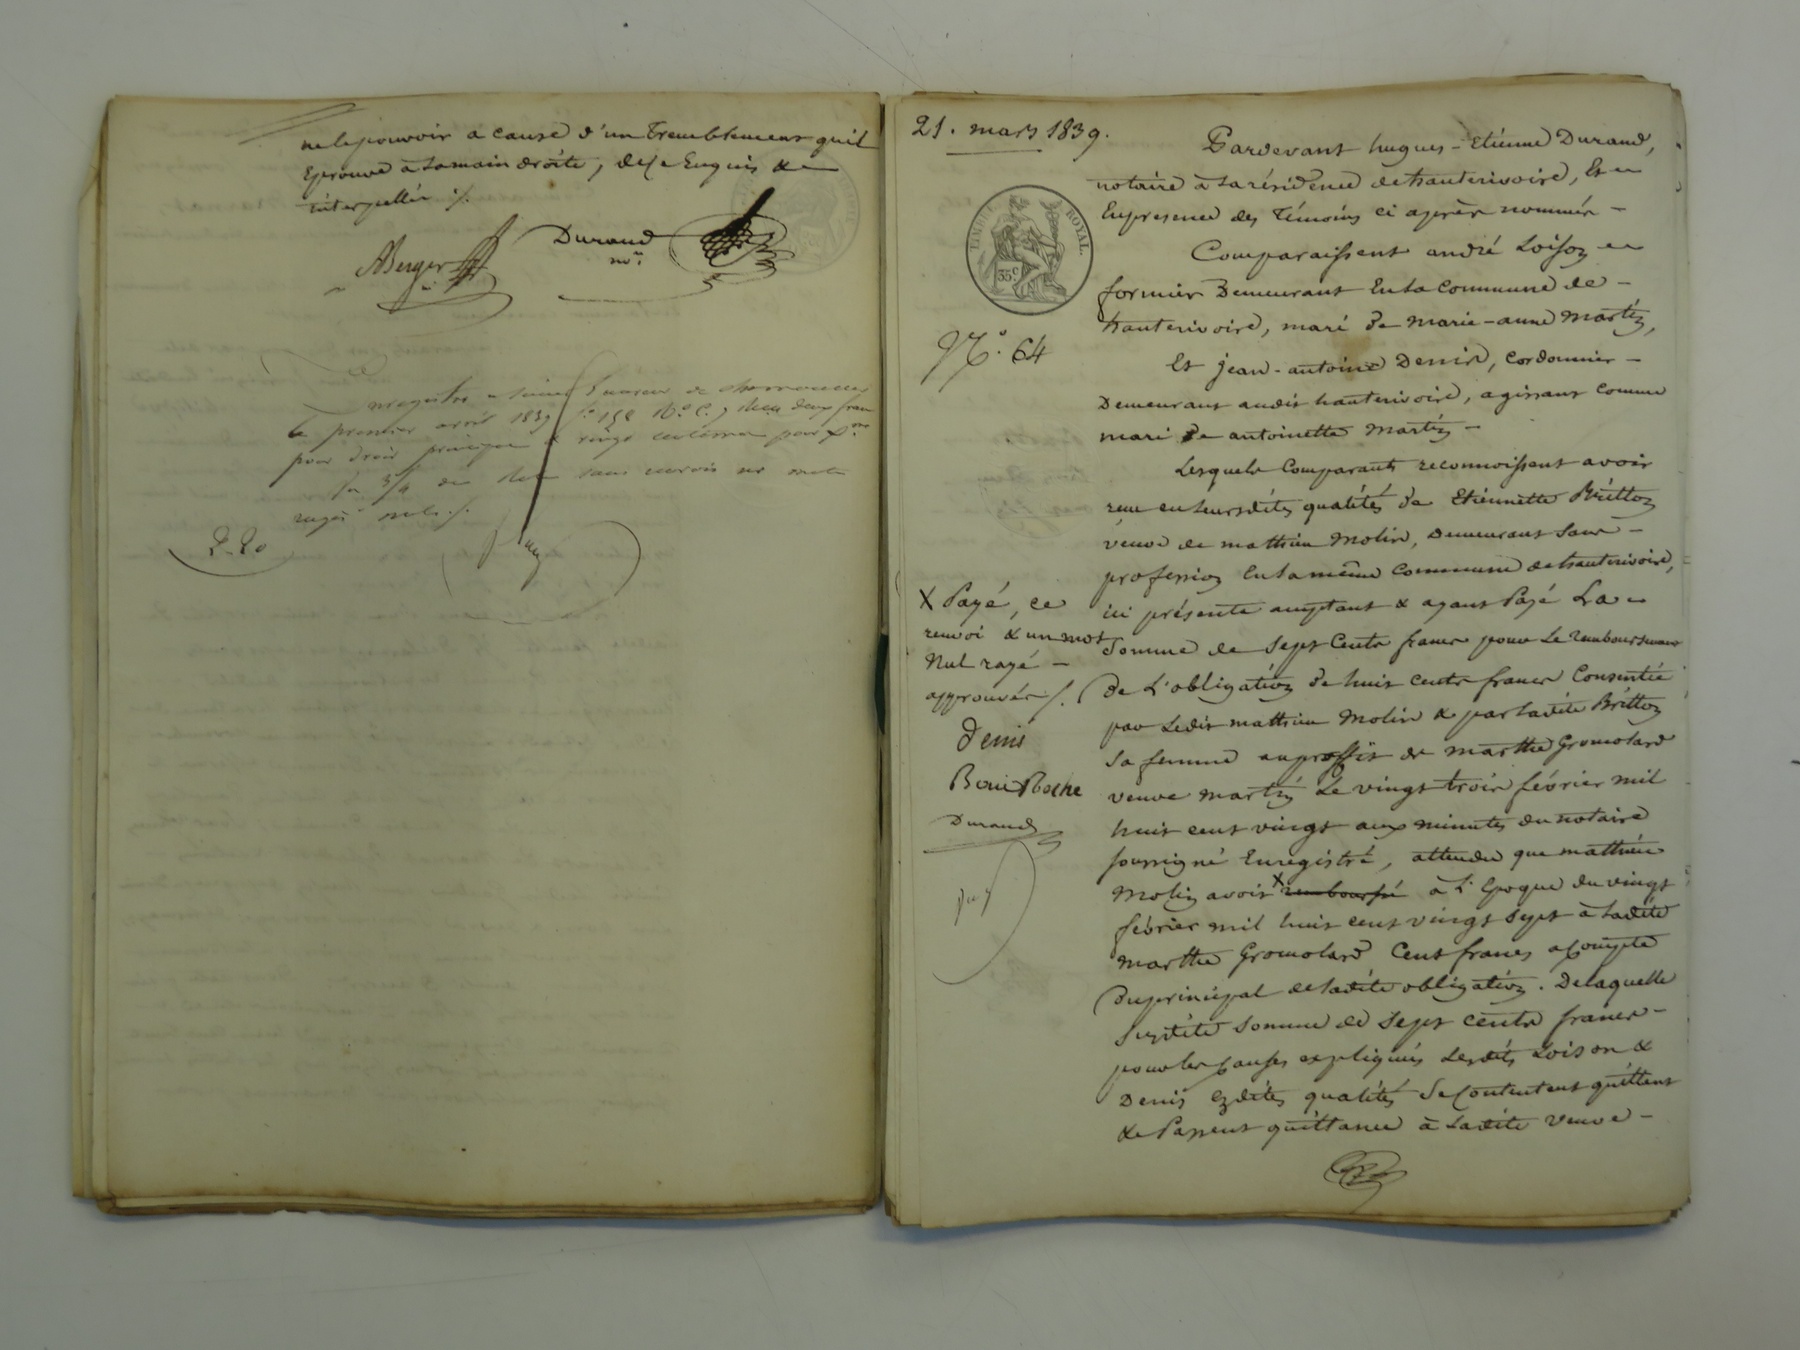 ne le pouvoir a cause d'un Tremblement quil
Eprouve à la main droite, de ce Enquis &
interpellés ./.
ABerger
Durand
nre
le premier avril 1839
pour droit principal & vingt centimes pour
rayés nuls ./.
2-20
21. mars 1839.
TIMBRE ROYAL
35c
N°. 64
Pardevant hugues-Etienne Durand,
notaire à la résidence de hauterivoire, Et
En presence des Témoins ci après nommés -
Comparaissent andré Loison
fermier Demeurant En la Commune de -
hauterivoire, mari de marie-anne Martin,
Et jean-antoine Denis, cordonnier -
Demeurant audit hauterivoire, agissant comme
mari de antoinette Martin -
Lesquels Comparants reconnoissent avoir
recu en leursdites qualités de Etiennette Britton
veuve de mathieu Molin, Demeurant sans -
profession En la même Commune de hauterivoire,
ici présente acceptant & ayant Payé La
Somme de Sept Cents francs pour Le Remboursement
de L'obligation de huit cents francs Consentie
par Ledit mathieu Molin & par ladite Britton
sa femme au proffit de marthe Gromolard
veuve martin Le vingt trois février mil
huit cent vingt aux minutes du notaire
soussigné Enregistré, attendu que mathieu
Molin avoit X remboursé à L'Epoque du vingt
février mil huit cent vingt sept à ladite
marthe Gromolard Cent francs acompte
du principal de ladite obligation. De laquelle
susdite Somme de Sept Cents francs -
pour les causes expliquées Lesdits Loison &
Denis Esdites qualités Se Contentent quittent
& Passent quittance à Ladite veuve -
X Payé, ce
renvoi & un mot
Nul rayé -
approuvés ./.
Denis
Boui Roche
Durand